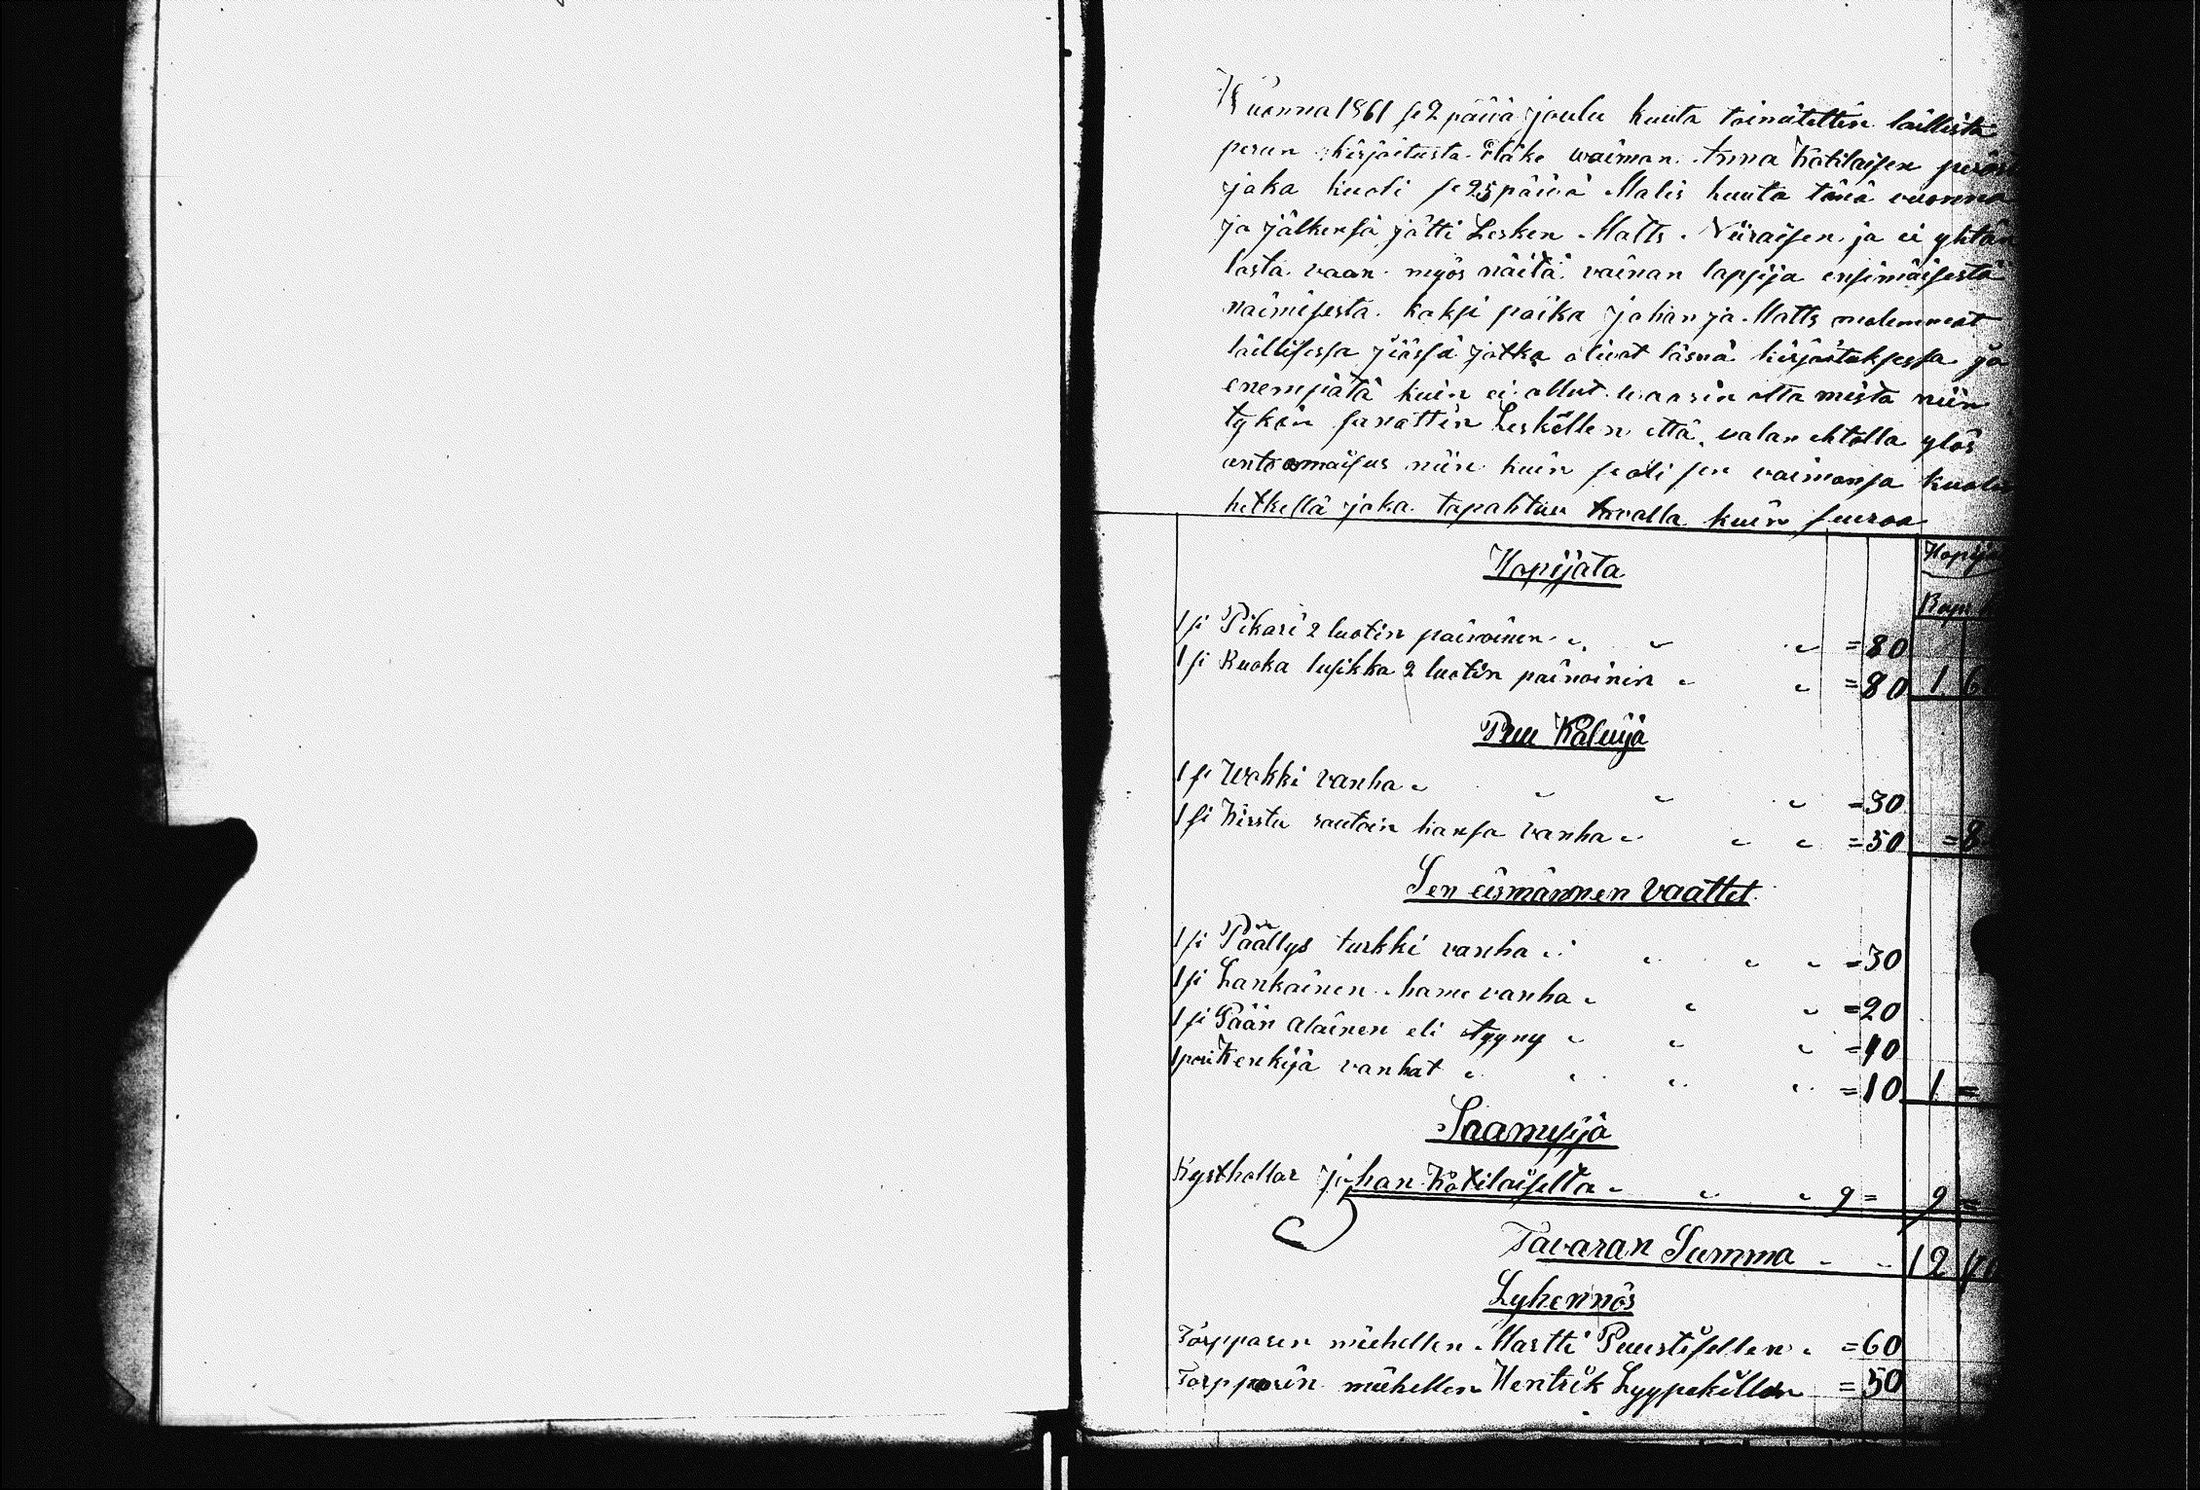 Wuonna 1861 se 2 päivä joulu kuuta toimitettin laillista
perun kirjoitusta Itäke waiman Anna Kotilaisen
joka kuoli se 25 päivä Malis kuuta tänä vuonna
ja jälkensä jätti Lesken Matts Niiraisen ja ei yhtän
lasta vaan myös näitä vainan lapsija ensimäisestä
naimisesta kaksi poika Johan ja Matts molemmat
laillisessa jiässä jotka olivat läsnä kirjoituksessa ja
enempätä kuin ei ollut waarin otta mista niin
tykön sanottin Leskellen että valan ehtolla ylös
anto omaisus niin kuin se oli sen vaimonsa kuolin
hetkellä joka tapahtuu tavalla kuin seuraa
Hopijata
Hopija
Rup
1 si Pikari 2 luotin painoinen = 80
1 si Ruoka lusikka 2 luotin painoinen = 80 1 6
Puu Kaluija
1 si Wakki vanha = 30
1 si Kirstu rautain kansa vanha = 50 = 8
Sen eismännen vaattet
1 si Päällys turkki vanha = 30
1 si Lankainen hame vanha = 20
1 si Pään alainen eli tyyny = 40
1 pari Kenkijä vanhat = 10 1 =
Saamisija
Rysthollar Johan Kotilaiselta 9 = 9 =
Tavaran Summa 12
Lyhennös
Torpparin miehellen Martti Puustisellen = 60
Torpparin miehellen Hentrik Lyypekillen = 50